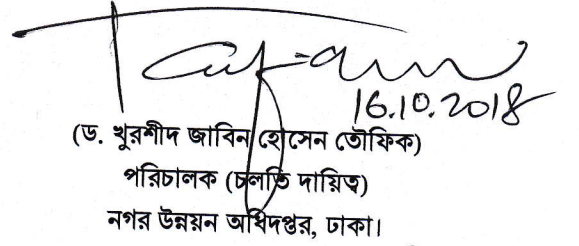 16.10.2018
(ড. খুরশীদ জাবিন হোসেন তৌফিক)
পরিচালক (চলতি দায়িত্ব)
নগর উন্নয়ন অধিদপ্তর, ঢাকা।